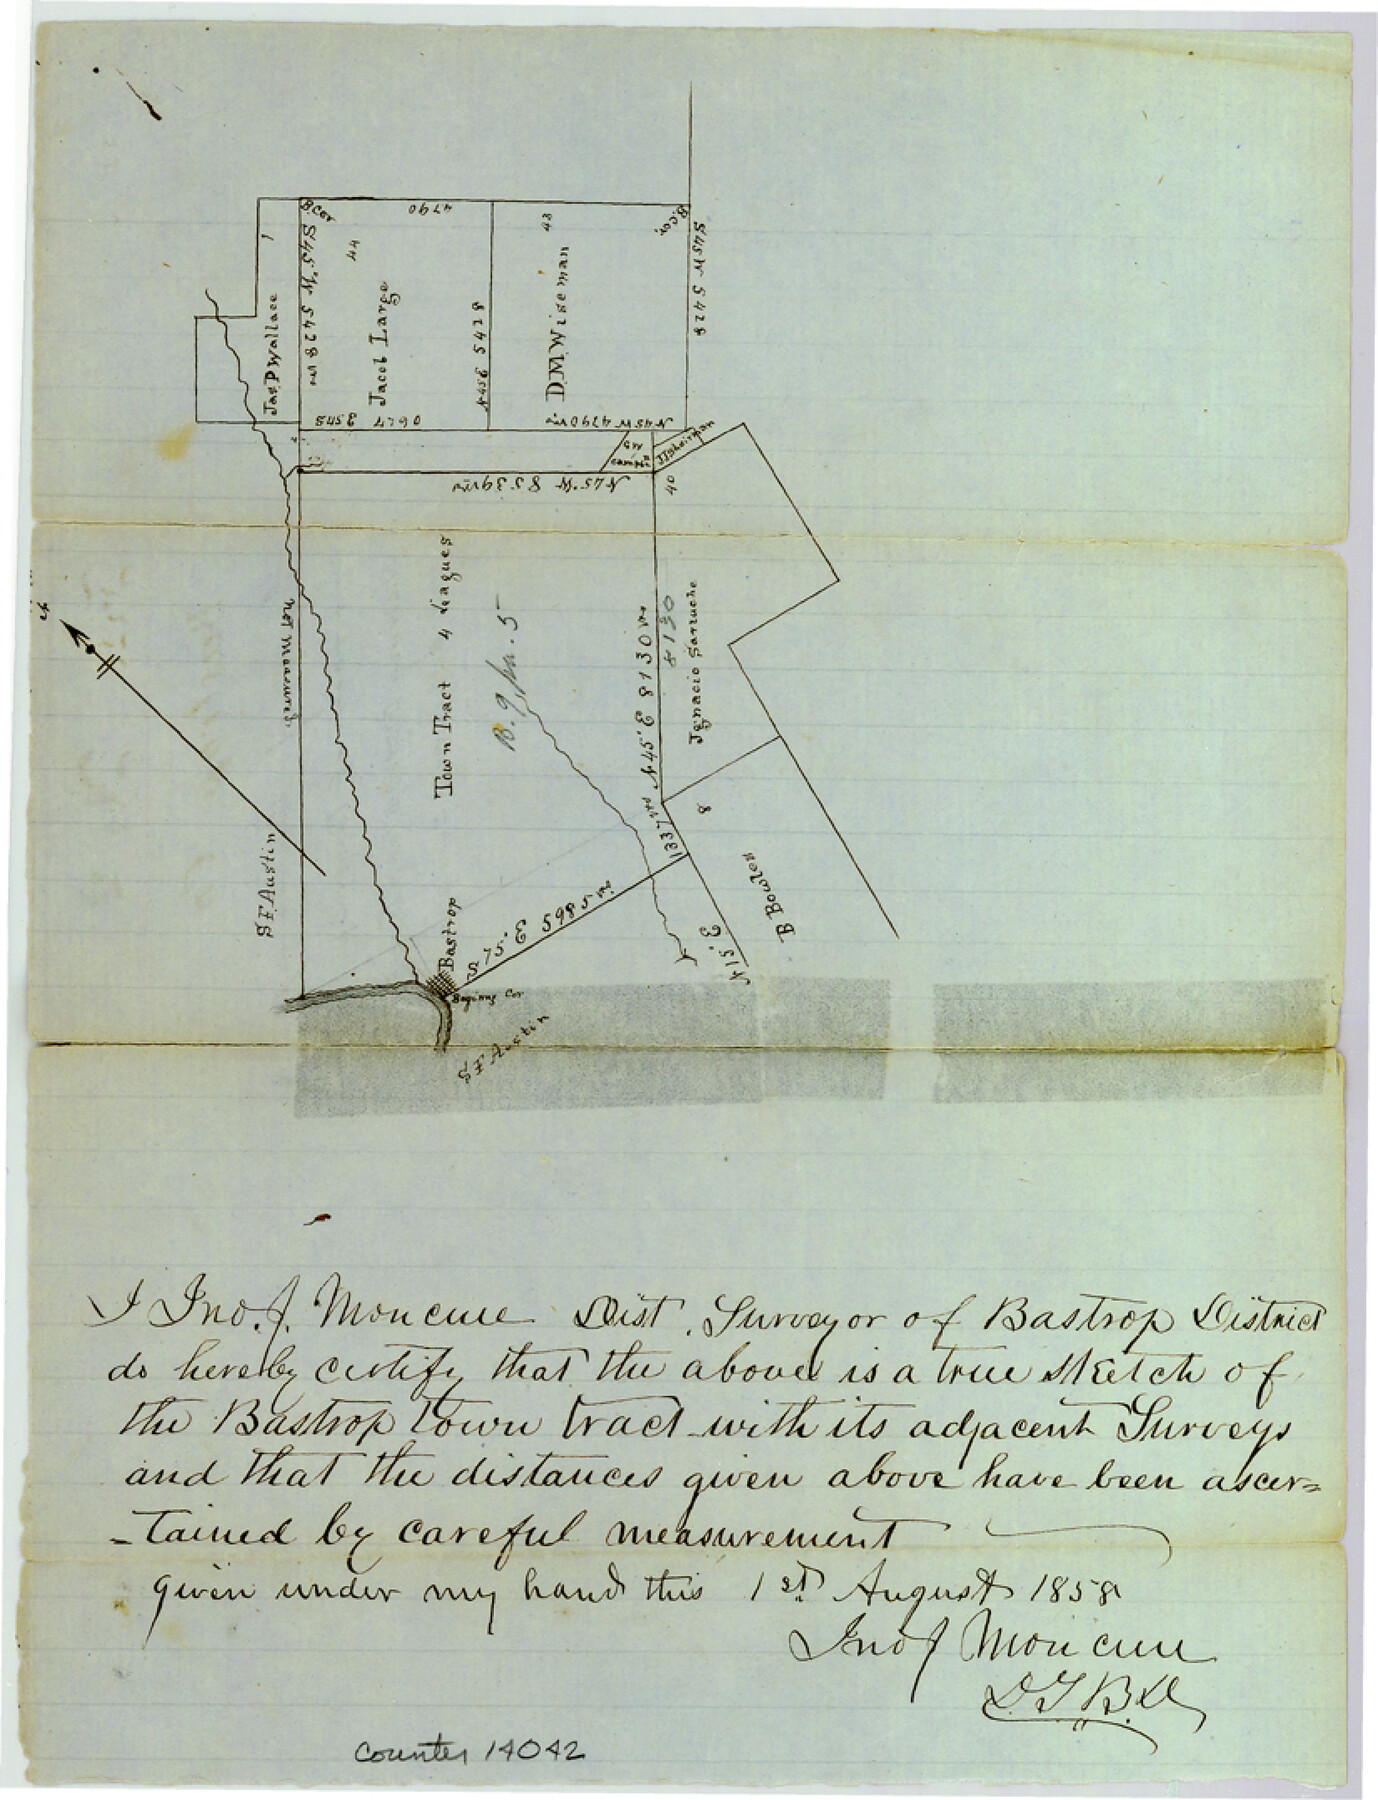 B. Cor
4790
43
B. Cor.
1
44
S 45° W 5428 vrs
Jas P Wallace
Jacob Large
N 45 E 5428
D M Wiseman
S 45 W 5428
N 45 W 4790 vrs
J J Sherman
N 45° W 8539 vrs
40
Town Tract 4 Leagues
B. 9,
5
not measured
N 45° E 8130 vrs
8130
Ignacio Sarruche
1337 vrs
8
S F Austin
B Bowles
Bastrop
S 75° E 5985 vrs
N 15° E
Begining Cor
S F Austin
I Jno. J. Moncure Dist. Surveyor of Bastrop District
do hereby certify that the above is a true sketch of
the Bastrop town tract with its adjacent Surveys
and that the distances given above have been ascer=
=tained by careful measurement
given under my hand this 1st August 1858
Jno J Moncure
counter 14042